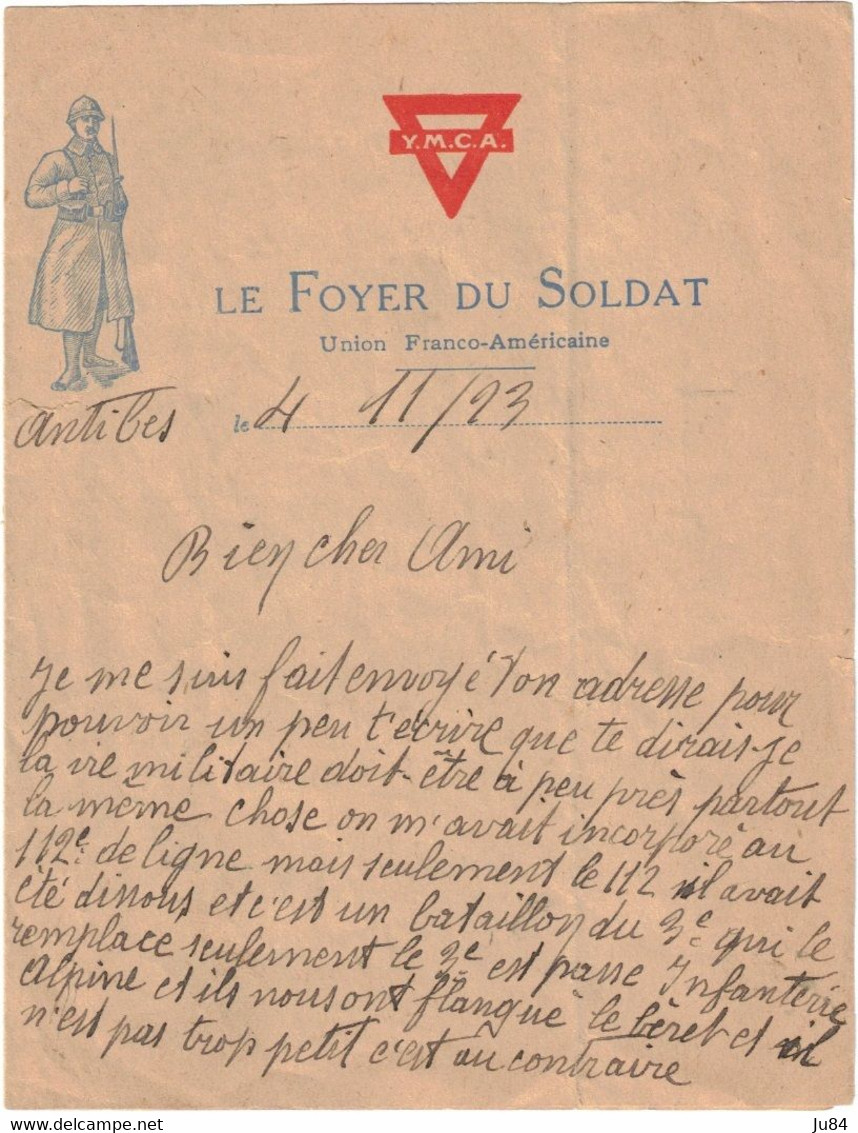 Y.M.C.A.
LE FOYER DU SOLDAT
Union Franco-Américaine
Antibes le 4 11/23
Bien cher Ami
Je me suis fait envoyé ton adresse pour
pouvoir un peu t'écrire que te dirais-je
la vie militaire doit-être à peu près partout
la même chose on m'avait incorporé au
112e de ligne mais seulement le 112 il avait
été dissous et c'est un bataillon du 3e qui le
remplace seulement le 3e est passé Infanterie
Alpine et ils nous ont flanqué le béret et il
n'est pas trop petit c'est au contraire
Ju84